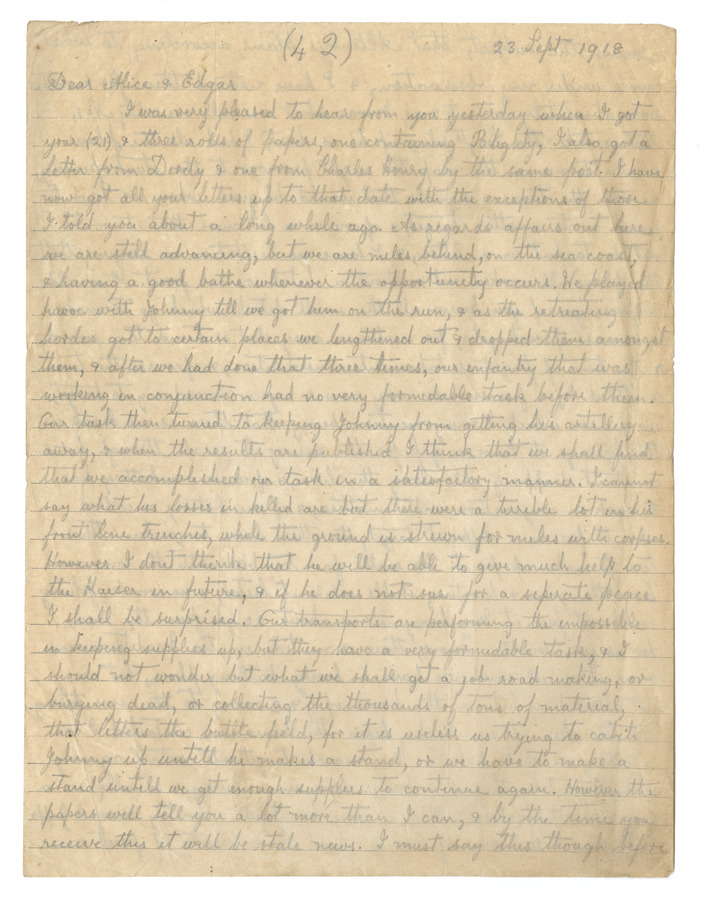 (42) 23 Sept 1918
Dear Alice & Edgar
I was very pleased to hear from you yesterday when I got
your (21) & three rolls of papers, one containing Blighty, I also got a
letter from Dordy & one from Charles Henry by the same post. I have
now got all your letters up to that date with the exceptions of those
I told you about a long while ago. As regards affairs out here
we are still advancing, but we are miles behind, on the sea coast,
& having a good bathe whenever the opportunity occurs. We played
havoc with Johnny till we got him on the run, & as the retreating
hordes got to certain places we lengthened out & dropped them amongst
them, & after we had done that three times, our infantry that was
working in conjunction had no very formidable task before them.
Our task then turned to keeping Johnny from getting his artillery
away, & when the results are published I think that we shall find
that we accomplished our task in a satisfactory manner. I cannot
say what his losses in killed are but there were a terrible lot in his
front line trenches, while the ground is strewn for miles with corpses.
However I don't think that he will be able to give much help to
the Kaiser in future, & if he does not sue for a seperate peace
I shall be surprised. Our transports are performing the impossible
in keeping supplies up, but they have a very formidable task, & I
should not wonder but what we shall get a job road making, or
burying dead, or collecting the thousands of tons of material,
that letters the battle field, for it is useless us trying to catch
Johnny up untill he makes a stand, or we have to make a
stand untill we get enough supplies to continue again. However the
papers will tell you a lot more than I can, & by the time you
receive this it will be stale news. I must say this though before